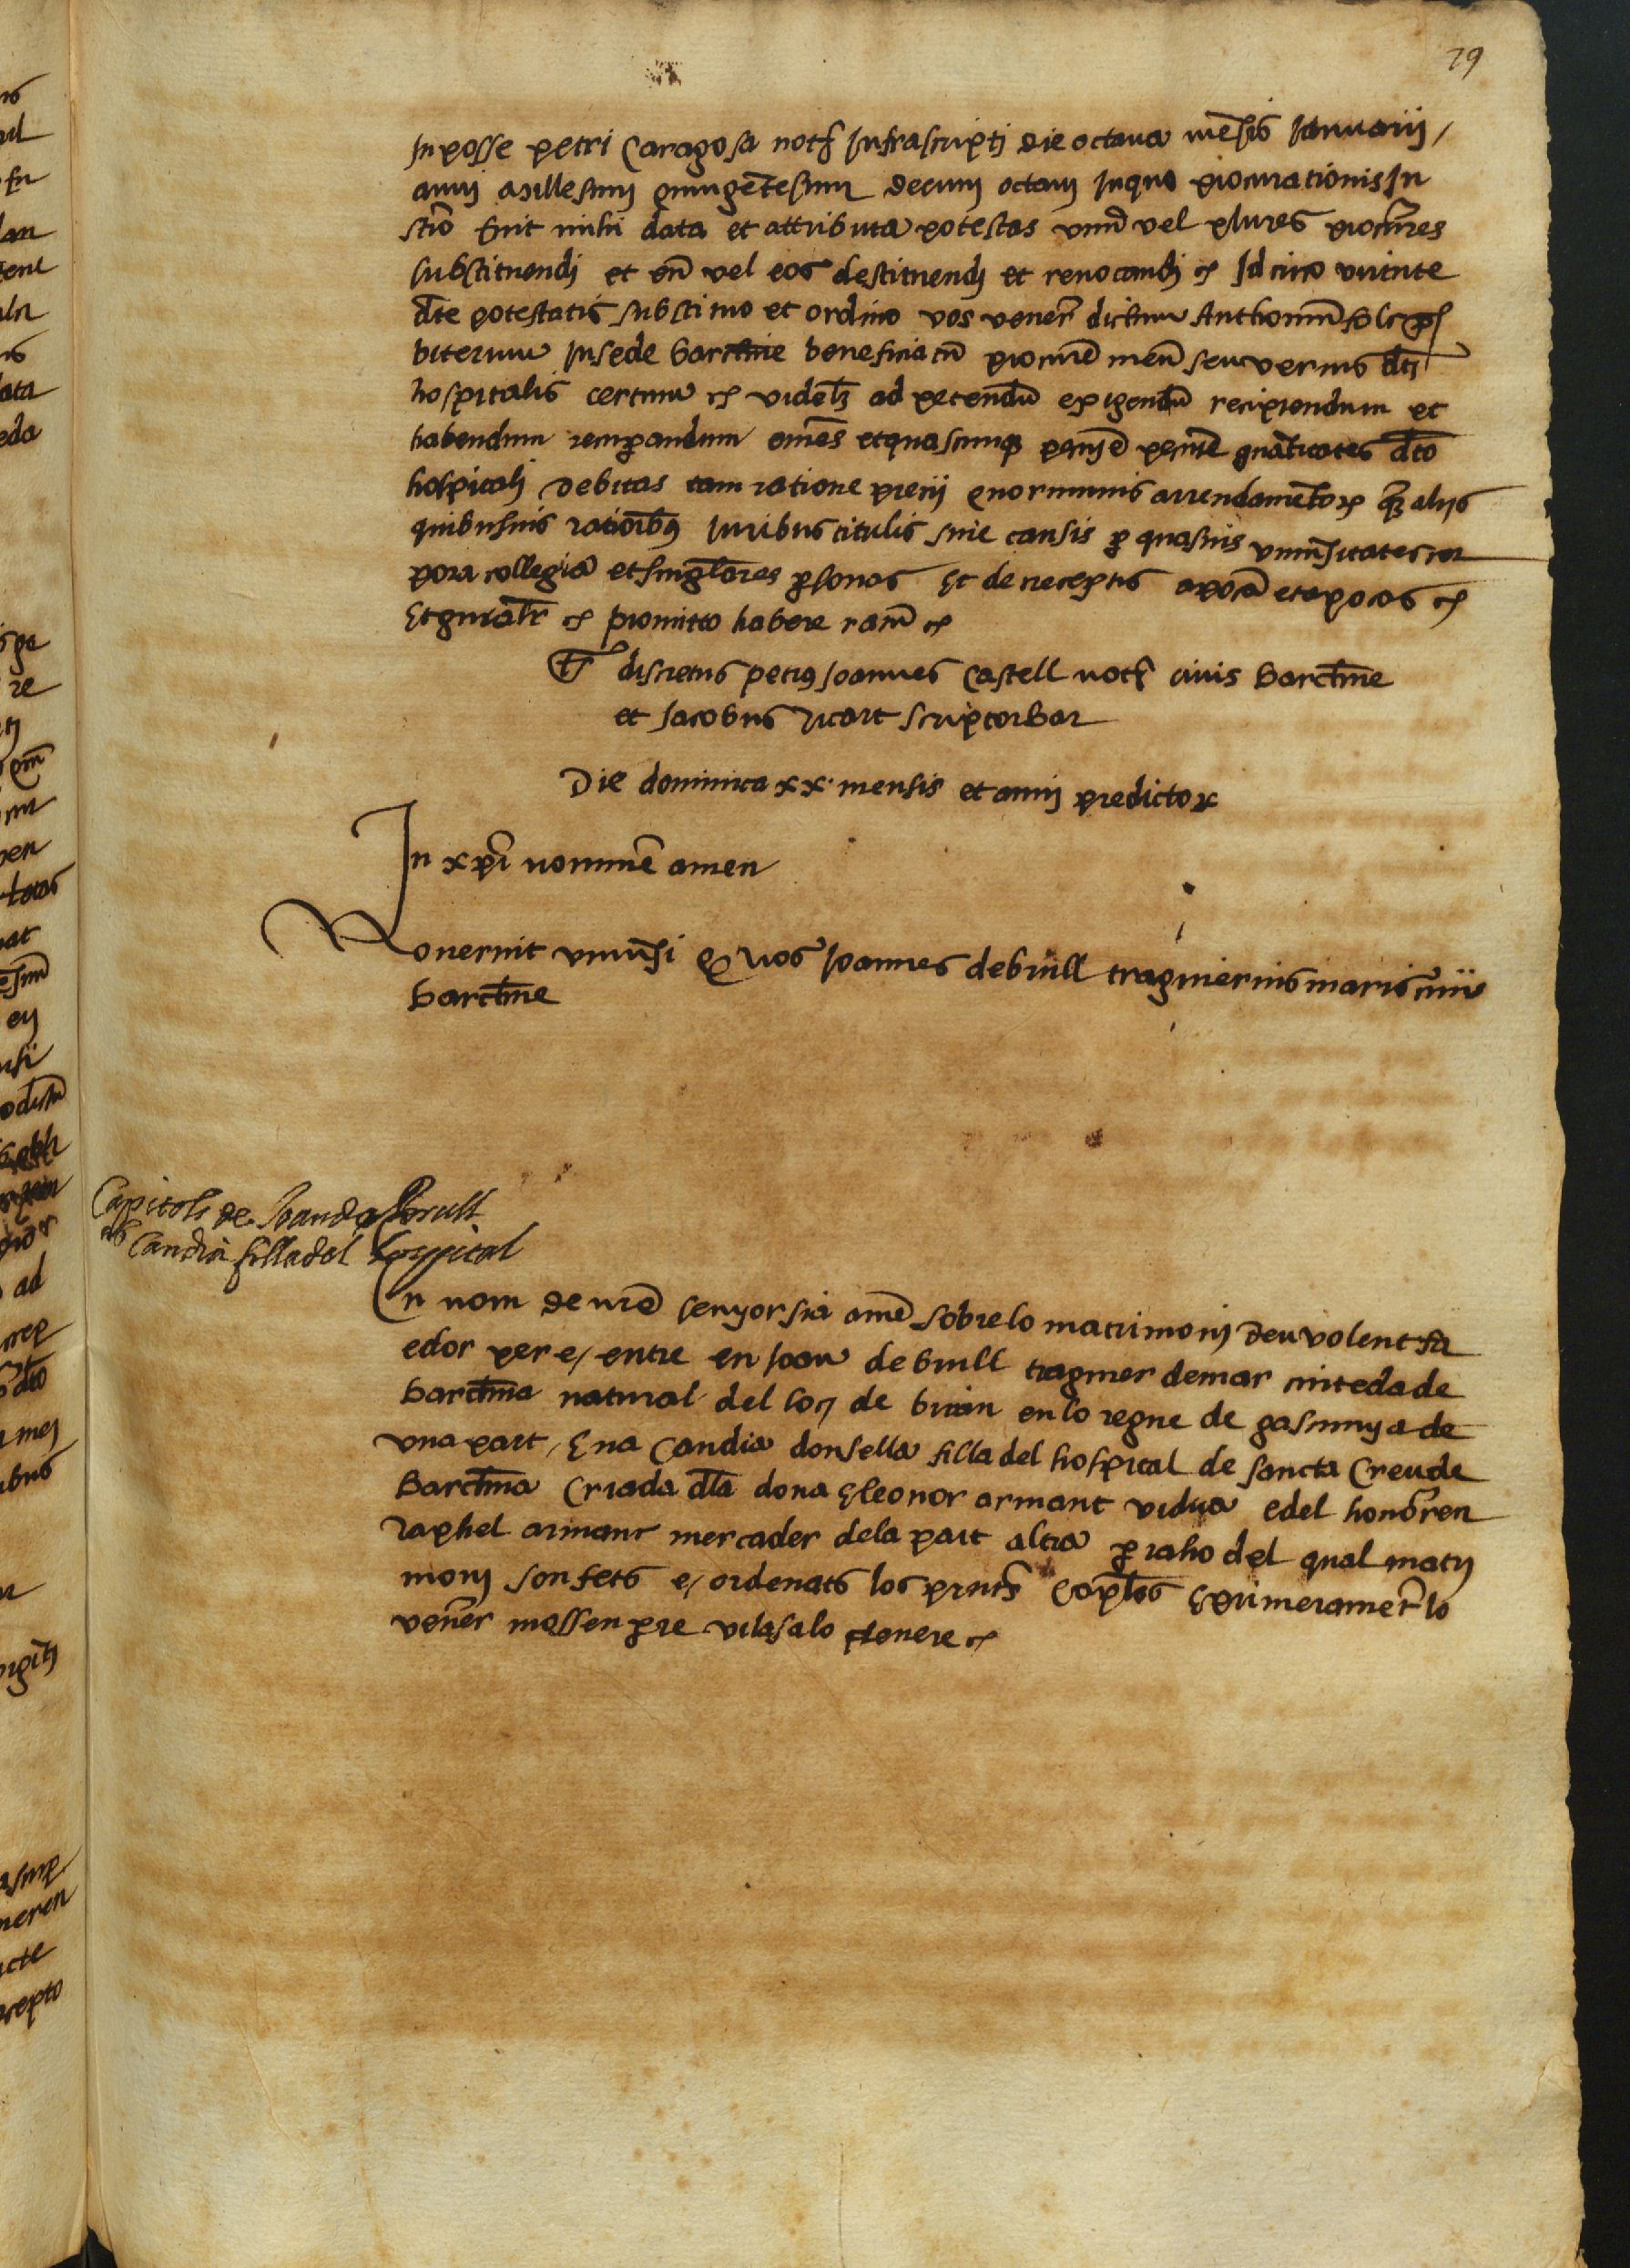 79
In posse petri Caragosa notℓ Infrascriptj die octaua mẽsis Januarij /
annj Millesimj quingẽtesimj decimj octauj In quo procurationis In
strõ fuit mihi data et attributa potestas vnũ vel plures procur̃es
substituendj et eũ vel eos destituendj et reuocandj etc̃ Idcirco virtute
dc̃te potestatis substituo et ordino vos vener̃ dictum Anthoniũ sols p̃s
biterum In sede barc̃hne beneficiatũ procur̃e meũ seu verius dc̃tj
hospitalis certum etc̃ videlꝫ ad petendũ exigendũ recipiendum et
habendum recuꝑandum om̃es et quascumqꝫ pecuniẽ quãtitates dc̃to
hospitalj debitas tam ratione precij quorumuis arrendamẽtoꝝ qꝫ alijs
quibusuis rationibꝰ Juribus titulis siue causis ꝑ quasuis vniuersitates cor
pora collegia et singlares ꝑsonas Et de receptis apocã et apocas etc̃
Et gñralr̃ etc̃ promitto habere ratũ etc̃
Tˢ discretus petrꝰ Joannes Castell notℓ ciuis barc̃hne
et Jacobus ricart scriptor bar
Die dominica xx. mensis et annj predictoꝝ
In xp̃i nomine amen
Nouerint vniuersi Q nos Joannes de brull traginerius maris ciuis
barc̃hne
Capitols de Joan de Brull
ab Candia filla del hospital
En nom de nr̃e senyor sia amẽ sobre lo matrimonj deu volent fa
edor per e / entre en Joan de brull traginer de mar ciutedã de
barc̃hna natural del loc de en lo regne de gascunya de
vna part / E na Candia donsella filla del hospital de sancta Creu de
Barc̃hna Criada dla dona Eleonor armant vidua e del honor̃ en
raphel armant mercader dela part altra ꝑ raho del qual matri
monj son fets e / ordenats los pnts̃ capl̃os E primeramẽt lo
vener̃ mossen pere vilasalo preuere etc̃